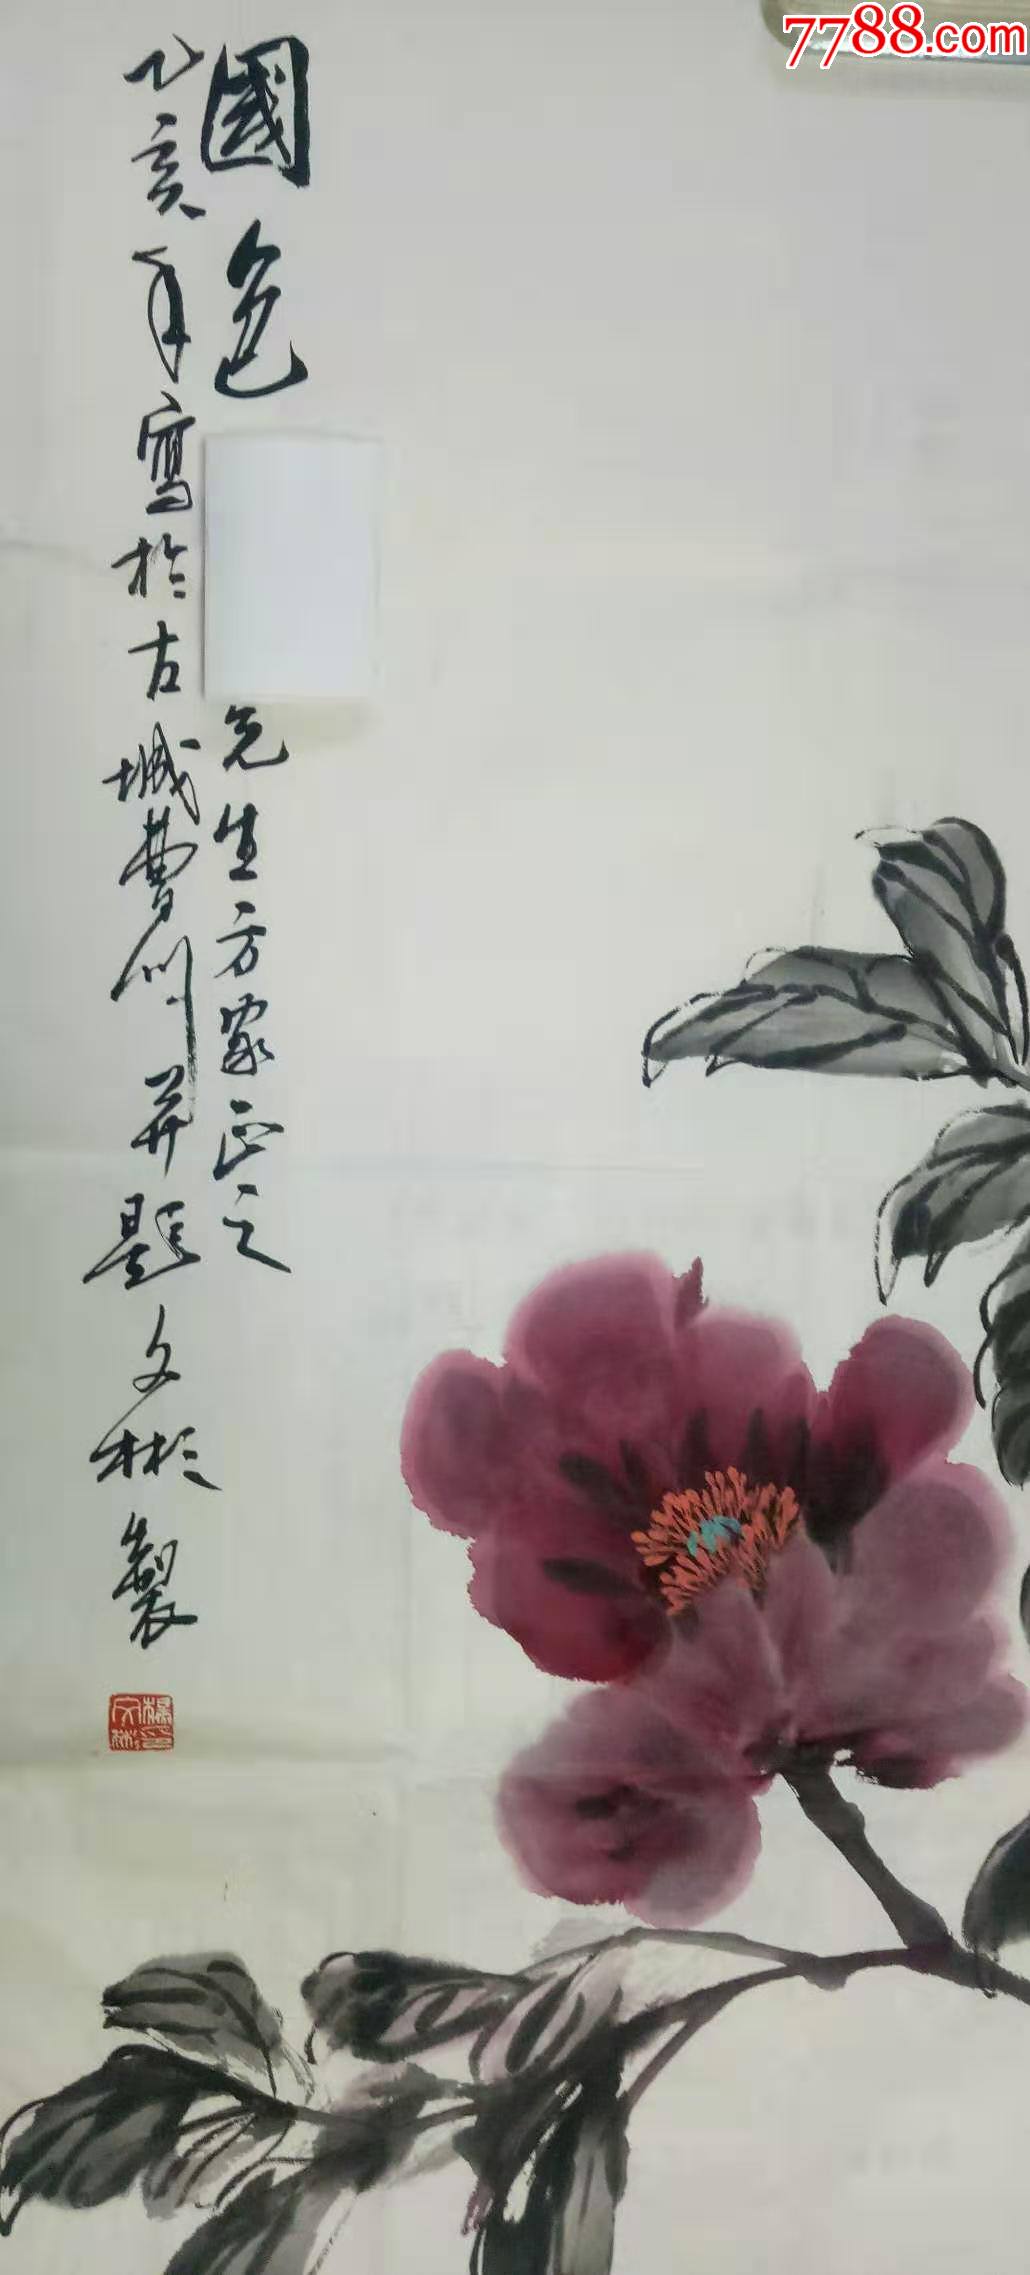 7788.com
國色
先生方家正之
乙亥年寫於古城曹州并題文彬製
楊文彬印